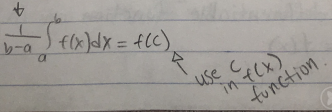 1/(b-a) ∫_a^b f(x)dx = f(c)
use c
in f(x)
function.